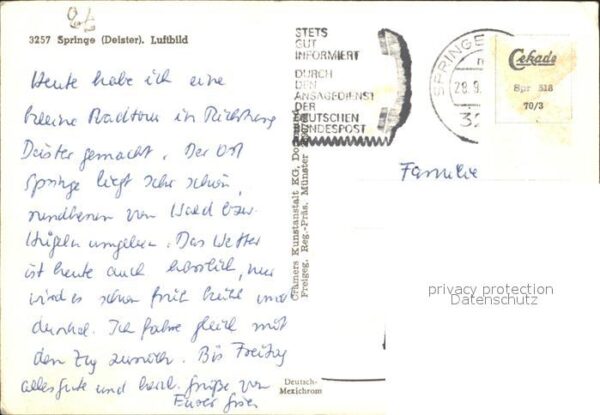 70
3257 Springe (Deister). Luftbild
Heute habe ich eine
kleine Radtour in Richtung
Deister gemacht. Der Ort
Springe liegt sehr schön,
rundherum von Wald bzw.
Hügeln umgeben. Das Wetter
ist heute auch herrlich, nur
wird es schon früh kühl und
dunkel. Ich fahre gleich mit
dem Zug zurück. Bis Freitag
alles Gute und herzl. Grüße von
Eurer
STETS
GUT
INFORMIERT
DURCH
DEN
ANSAGEDIENST
DER
DEUTSCHEN
BUNDESPOST
SPRINGE
28.9.
Cekade
Spr 518
70/3
Familie
Cramers Kunstanstalt KG, Dortmund
Freigeg. Reg.-Präs. Münster
Deutsch-
Mexichrom
privacy protection
Datenschutz